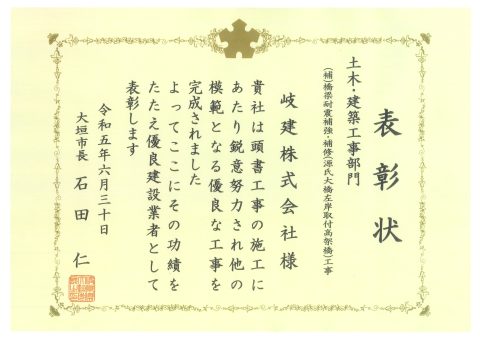 表彰状
土木・建築工事部門
(補)橋梁耐震補強・補修(源氏大橋左岸取付高架橋)工事
岐建株式会社様
貴社は頭書工事の施工に
あたり鋭意努力され他の
模範となる優良な工事を
完成されました
よってここにその功績を
たたえ優良建設業者として
表彰します
令和五年六月三十日
大垣市長 石田 仁